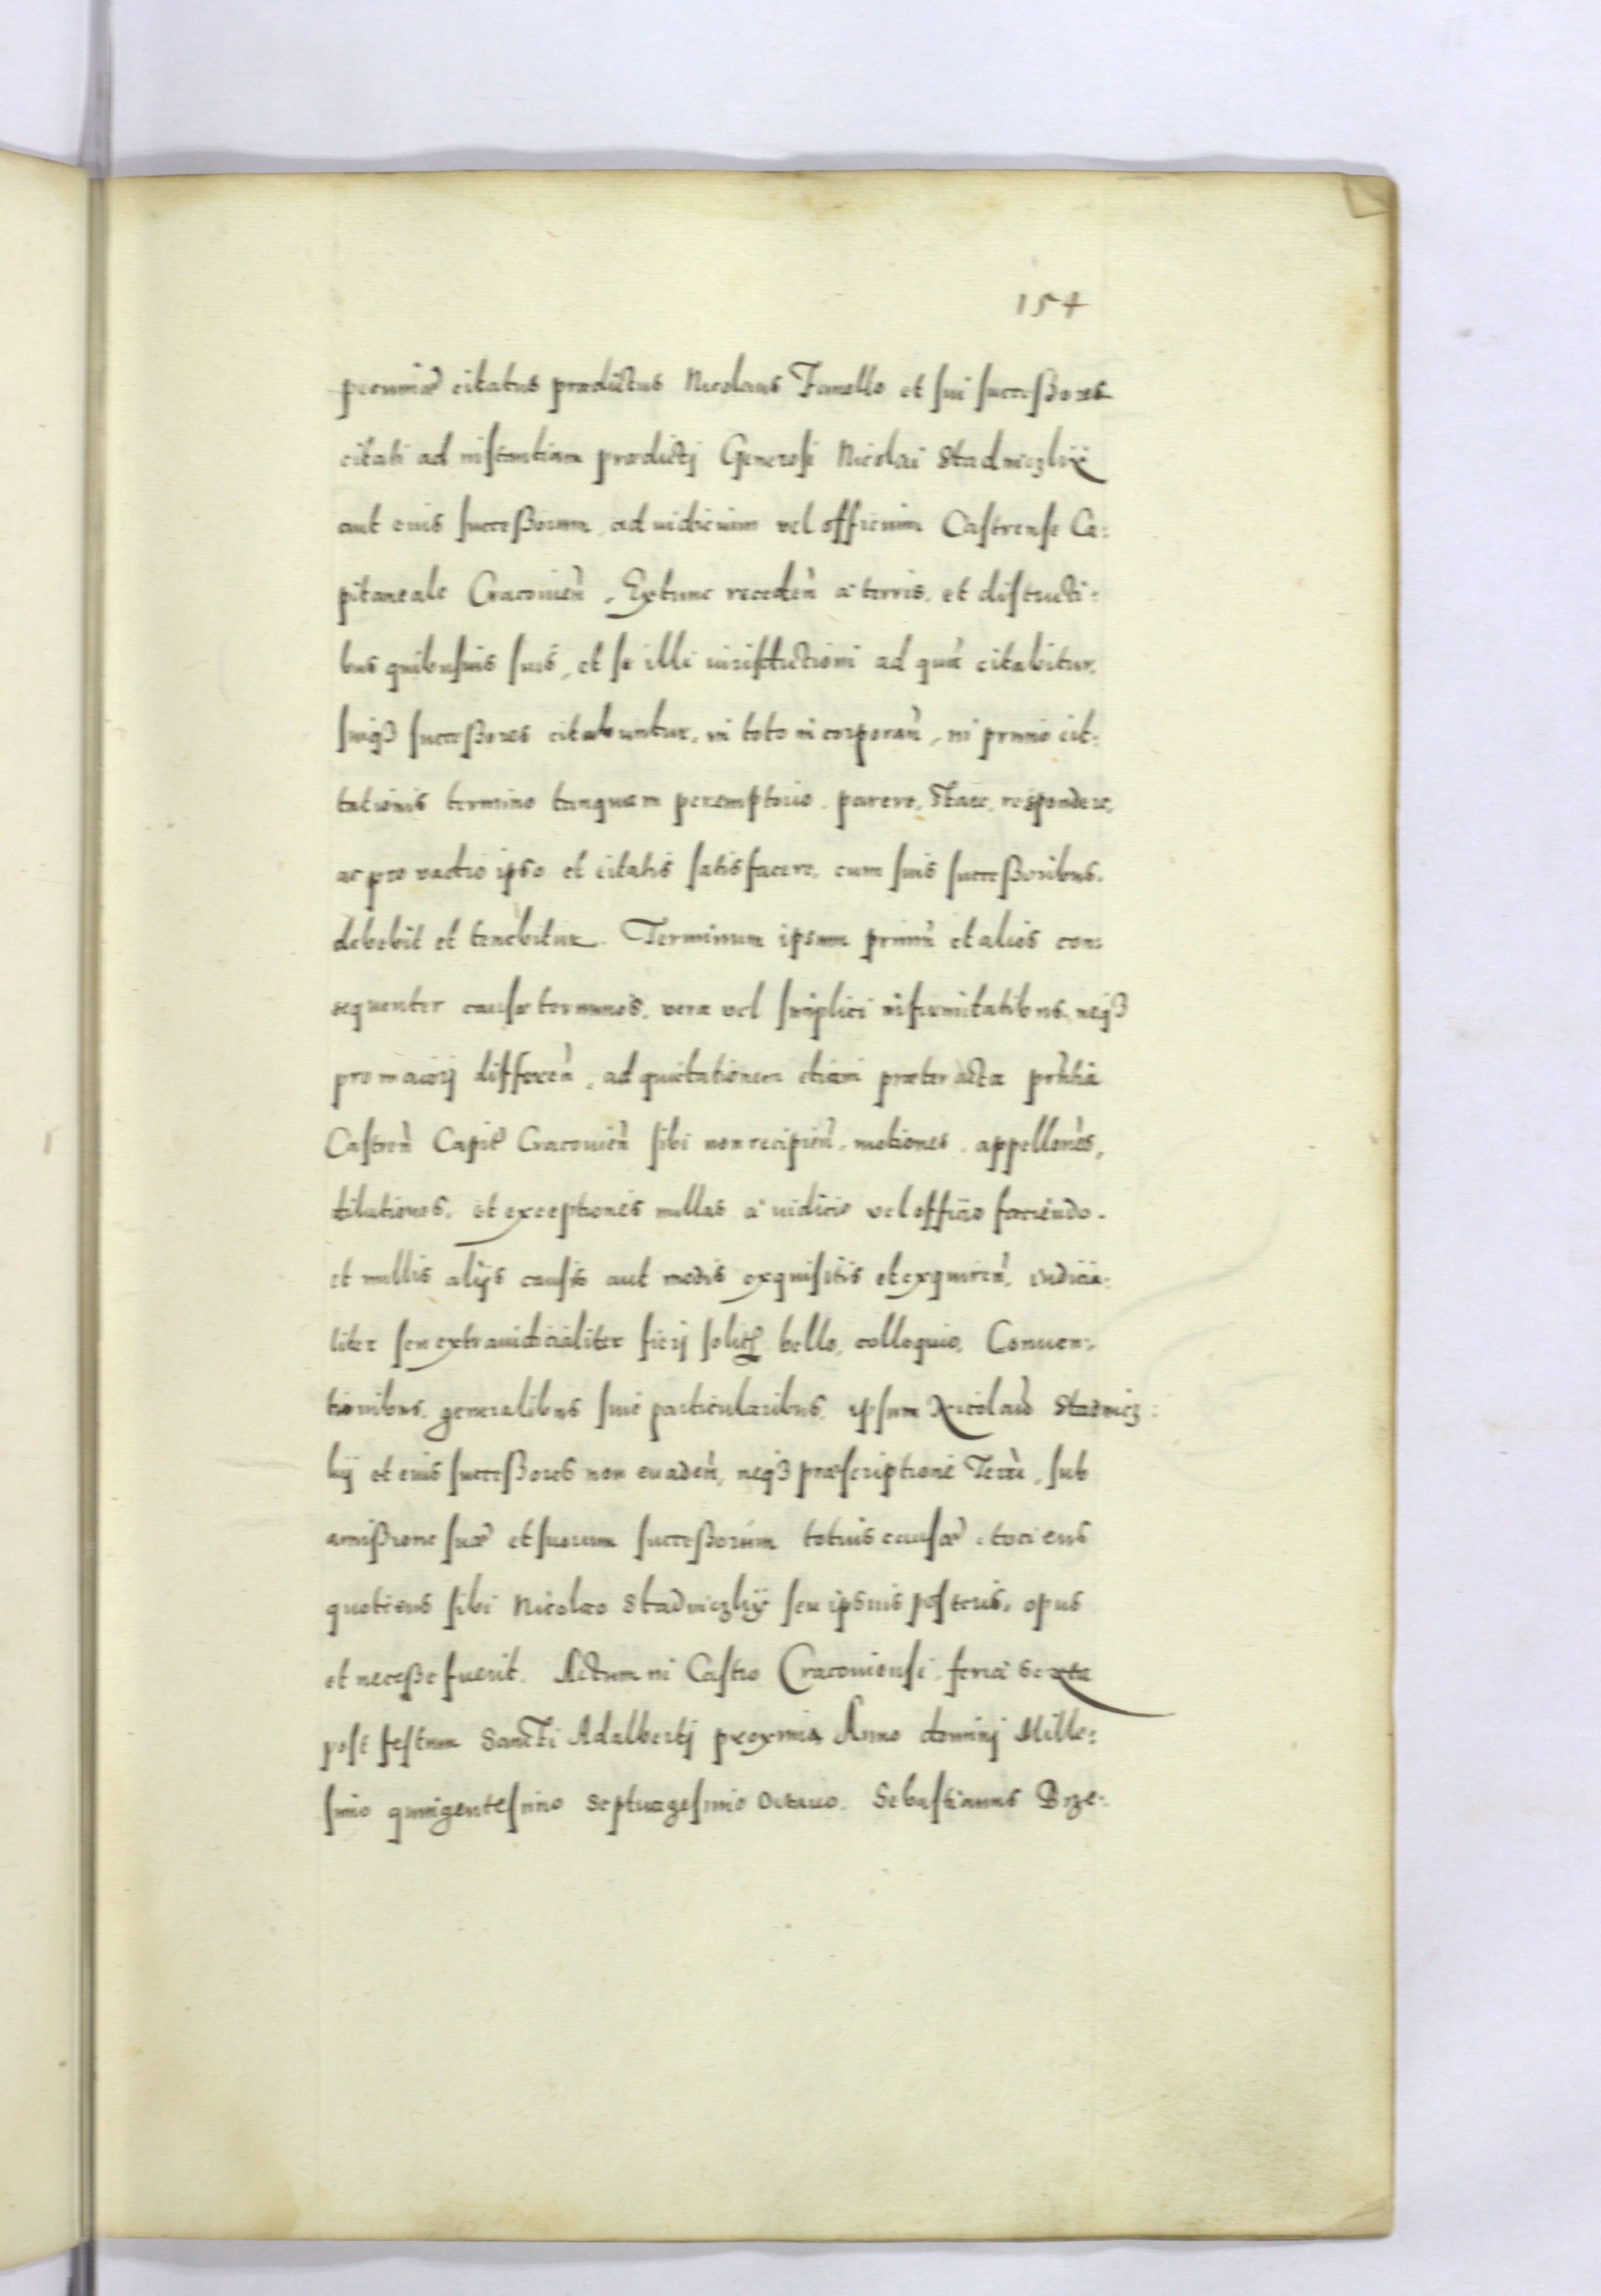 154
pecuniæ citatus prædictus Nicolaus Fanello et sui successores
citati ad instantiam prædictj Generosi Nicolai Stadniczkÿ
aut eius successorum, ad iudicium vel officium Castrense Ca:
pitaneale Cracovieñ, Extunc recedeñ à terris, et districti:
bus quibusuis suis, et se illi iurisdictioni ad quã citabitur,
suiqȝ successores citabuntur, in toto incorporañ, in primo cit:
tationis termino tanquam peremptorio, parere, Stare, respondere,
ac pro vadio ipso et citatis satisfacere, cum suis successoribus,
debebit et tenebitur. Terminum ipsum primũ et alios con:
sequenter causæ terminos, vera vel simplici infirmitatibus, neqȝ
pro maiorj differeñ, ad quietationem etiam præter acta prñtia
Castreñ Capit̃ Cracovieñ sibi non recipieñ, motiones, appellões,
dilationes, et exceptiones nullas à iudicio vel officio faciendo,
et nullis alijs causis aut modis exquisitis et exquireñ, iudicia:
liter seu extraiudicialiter fierj solit̃ bello, colloquio, Conuen:
tionibus, generalibus siue particularibus, ipsum Nicolaũ Stadnicz:
kij et eius successores non euadeñ, neqȝ præscriptione Terrĩ, sub
amissione suæ et suorum successorum totius causæ, tociens
quotiens sibi Nicolao Stadniczkÿ seu ipsius posteris, opus
et necesse fuerit. Actum in Castro Cracouiensi, feria sexta
post festum Sancti Adalbertj proxima Anno dominj Mille:
simo quingentesimo septuagesimo octauo. Sebastianus Brze: